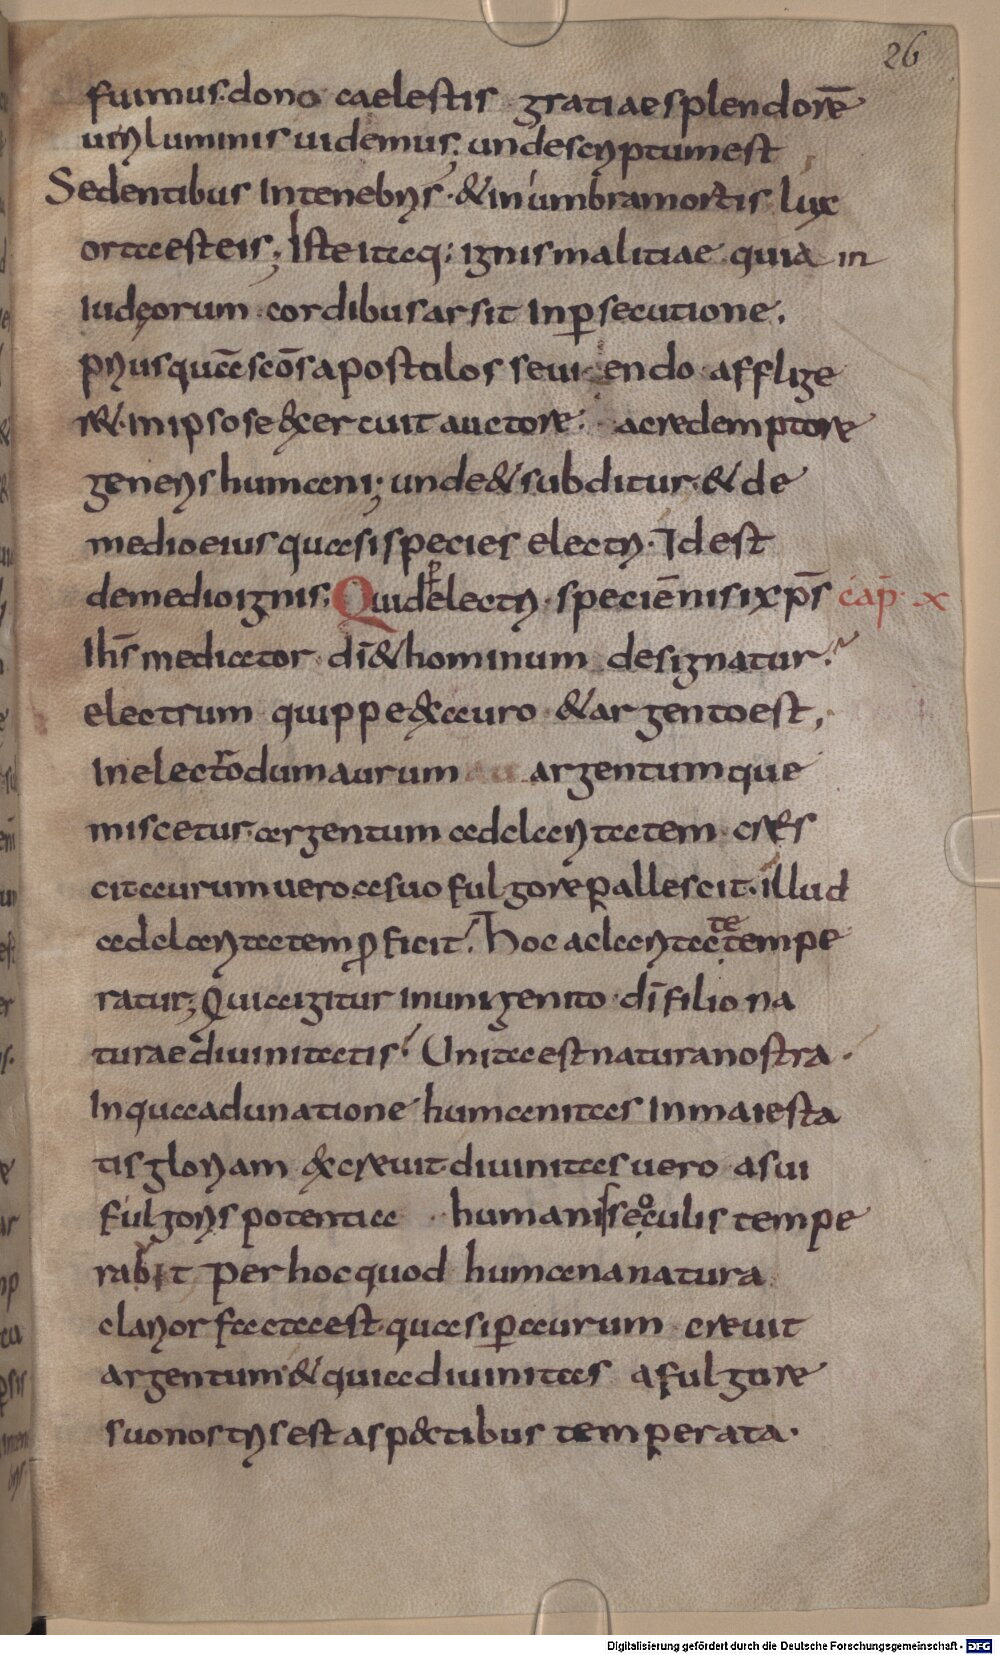 26
fuimus. dono caelestis gratiae splendorē
ueri luminis uidemus; unde scriptum est
Sedentibus In tenebris. & in umbra mortis lux
orta est eis; Iste itaq; ignis malitiae quia in
Iudęorum cordibus arsit In p̱secutione.
priusquā scōs apostolos seuiendo afflige
r&. in ipso se exercuit auctore. ac redemptore
generis humani; unde & subditur. & de
medio eius quasi species electri. Id est
de medio ignis; Quid electri speciē nisi xp̄s cap̄ x
Ih̄s mediator dī & hominum designatur.
electrum quippe ex auro & argento est,
In electro dum aurum argentumque
miscetur. argentum ad claritatem cres
cit aurum uero a suo fulgore pallescit. illud
ad claritatem ꝓficit. Hoc a claritate tempe
ratur; Quia igitur in unigenito dī filio na
turae diuinitatis. Unita est natura nostra.
In qua adunatione humanitas In maiesta
tis gloriam excreuit. diuinitas uero a sui
fulgoris potentia humanis oculis tempe
rabit per hoc quod humana natura
clarior facta est. quasi p̱ aurum creuit
argentum. & quia diuinitas a fulgore
suo nostris est aspectibus temperata.
Digitalisierung gefördert durch die Deutsche Forschungsgemeinschaft - DFG